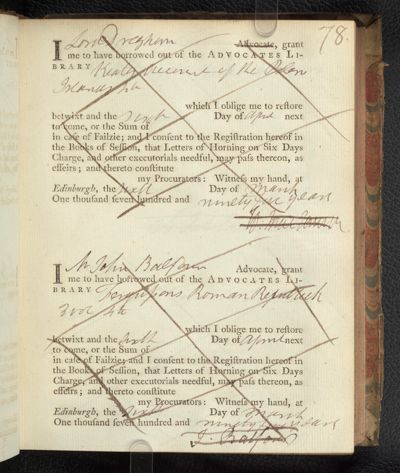 78.
I Lord Dreghorn Advocate, grant
me to have borrowed out of the ADVOCATES LI-
BRARY Keates account of the Pelew
Islands 4to
which I oblige me to restore
betwixt and the sixth Day of April next
to come, or the Sum of
in case of Failzie; and I consent to the Registration hereof in
the Books of Session, that Letters of Horning on Six Days
Charge, and other executorials needful, may pass thereon, as
effeirs; and thereto constitute
my Procurators: Witness my hand, at
Edinburgh, the sixth Day of March
One thousand seven hundred and ninety six years
I Mr John Balfour Advocate, grant
me to have borrowed out of the ADVOCATES LI-
BRARY Fergusons Roman Republick
3 vol 4to
which I oblige me to restore
betwixt and the sixth Day of April next
to come, or the Sum of
in case of Failzie; and I consent to the Registration hereof in
the Books of Session, that Letters of Horning on Six Days
Charge, and other executorials needful, may pass thereon, as
effeirs; and thereto constitute
my Procurators: Witness my hand, at
Edinburgh, the sixth Day of March
One thousand seven hundred and ninety six years
J Balfour